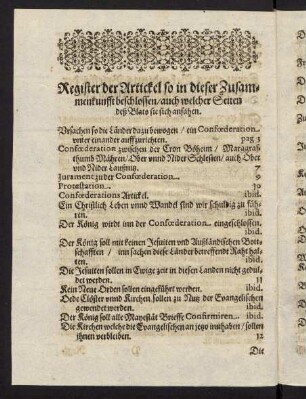 Register der Artickel so in dieser Zusam-
menkunfft beschlossen/ auch welcher Seiten
deß Blats sie sich anfahen.
Vrsachen so die Länder dazu bewogen/ ein Confœderation
vnter einander auffzurichten. pag. 1
Confœderation zwischen der Cron Böheim/ Marggraf-
thumb Mähren/ Ober vnnd Nider Schlesien/ auch Ober
vnd Nider Laußnitz. 7
Jurament zu der Confœderation. 9
Protestation. 10
Confœderations Artickel. ibid.
Ein Christlich Leben vnnd Wandel sind wir schuldig zu füh-
ren. ibid.
Der König wirdt inn der Confœderation eingeschlossen.
ibid.
Der König soll mit keinen Jesuiten vnd Außländischen Bott-
schafften/ inn sachen diese Länder betreffende Raht hal-
ten. ibid.
Die Jesuiten sollen in Ewige zeit in diesen Landen nicht gedul-
det werden. 11
Kein Neue Orden sollen eingeführt werden. ibid.
Oede Clöster vnnd Kirchen sollen zu Nutz der Evangelischen
gewendet werden. ibid.
Der König soll alle Mayestät Brieffe Confirmiren. ibid.
Die Kirchen welche die Evangelischen an jetzo innhaben/ sollen
jhnen verbleiben. 12
Die